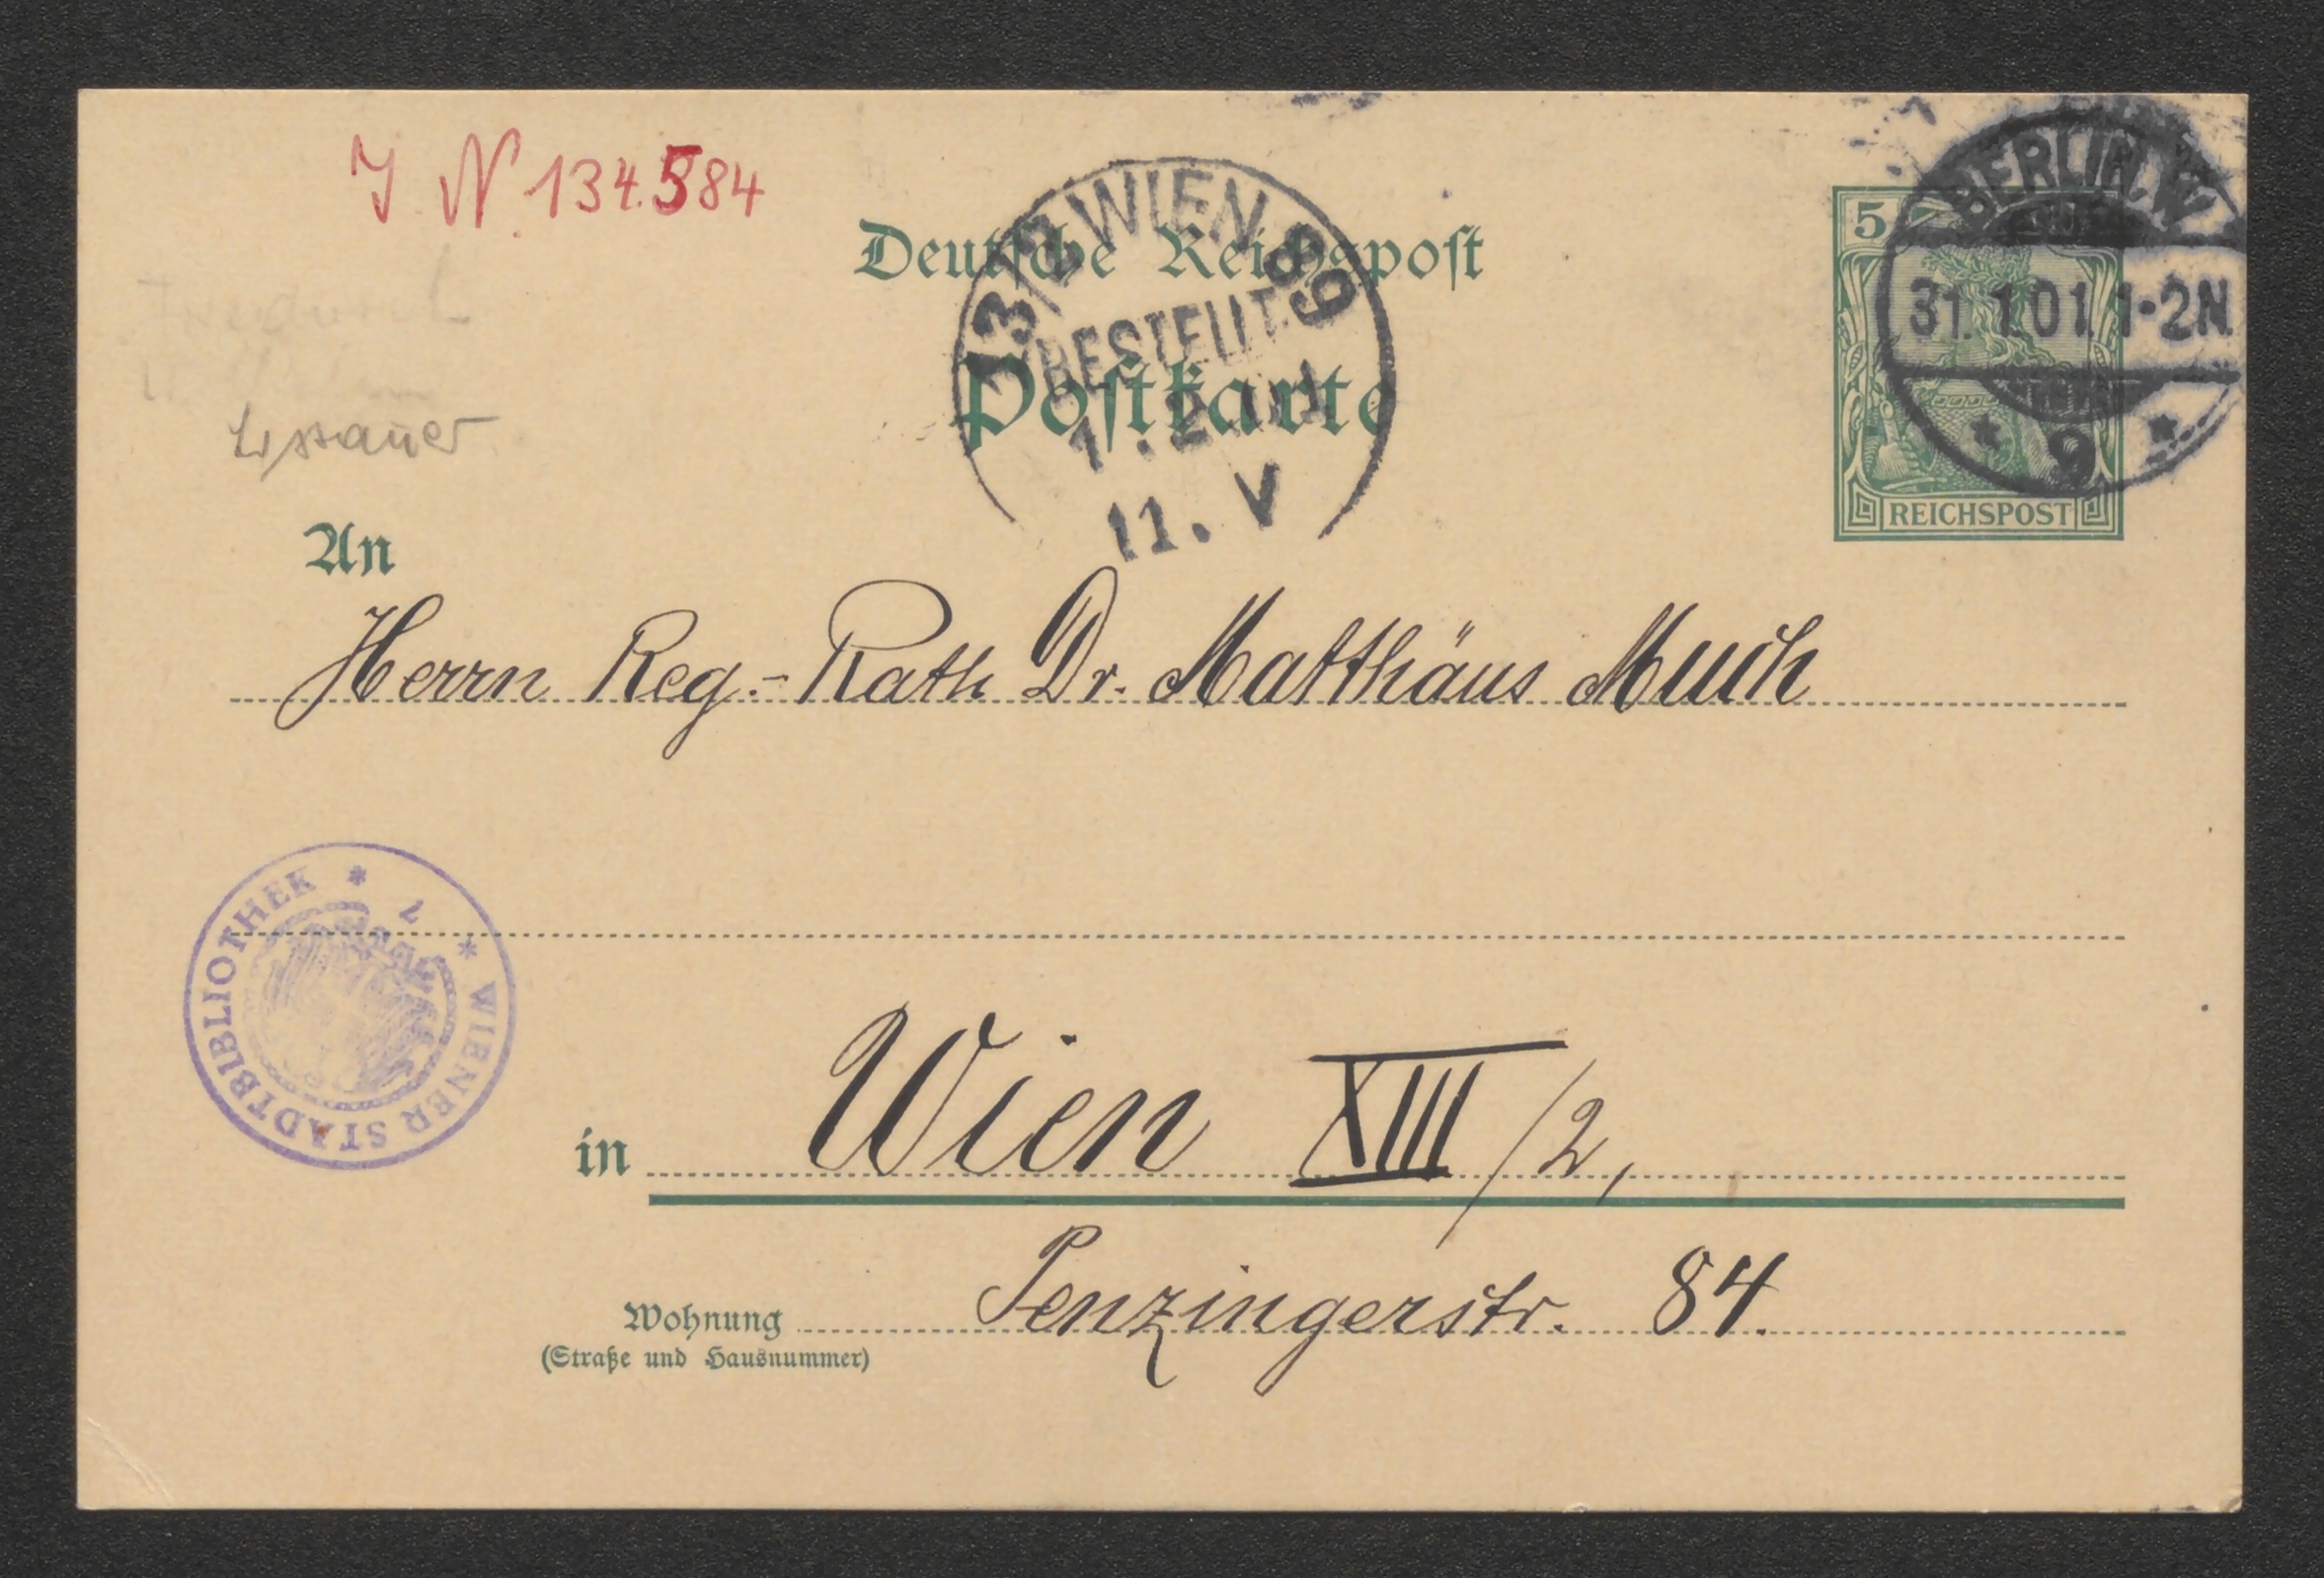 J. N. 134.584
Deutsche Reichspost
Postkarte
13/2 WIEN 89
BESTELLT
11. V
5
REICHSPOST
BERLIN. W
31.1.01. 1-2N.
* 9 *
Lissauer
An
Herrn Reg.-Rath Dr. Matthäus Much
* WIENER STADTBIBLIOTHEK *
in Wien XIII/2,
Wohnung Penzingerstr. 84.
(Straße und Hausnummer)